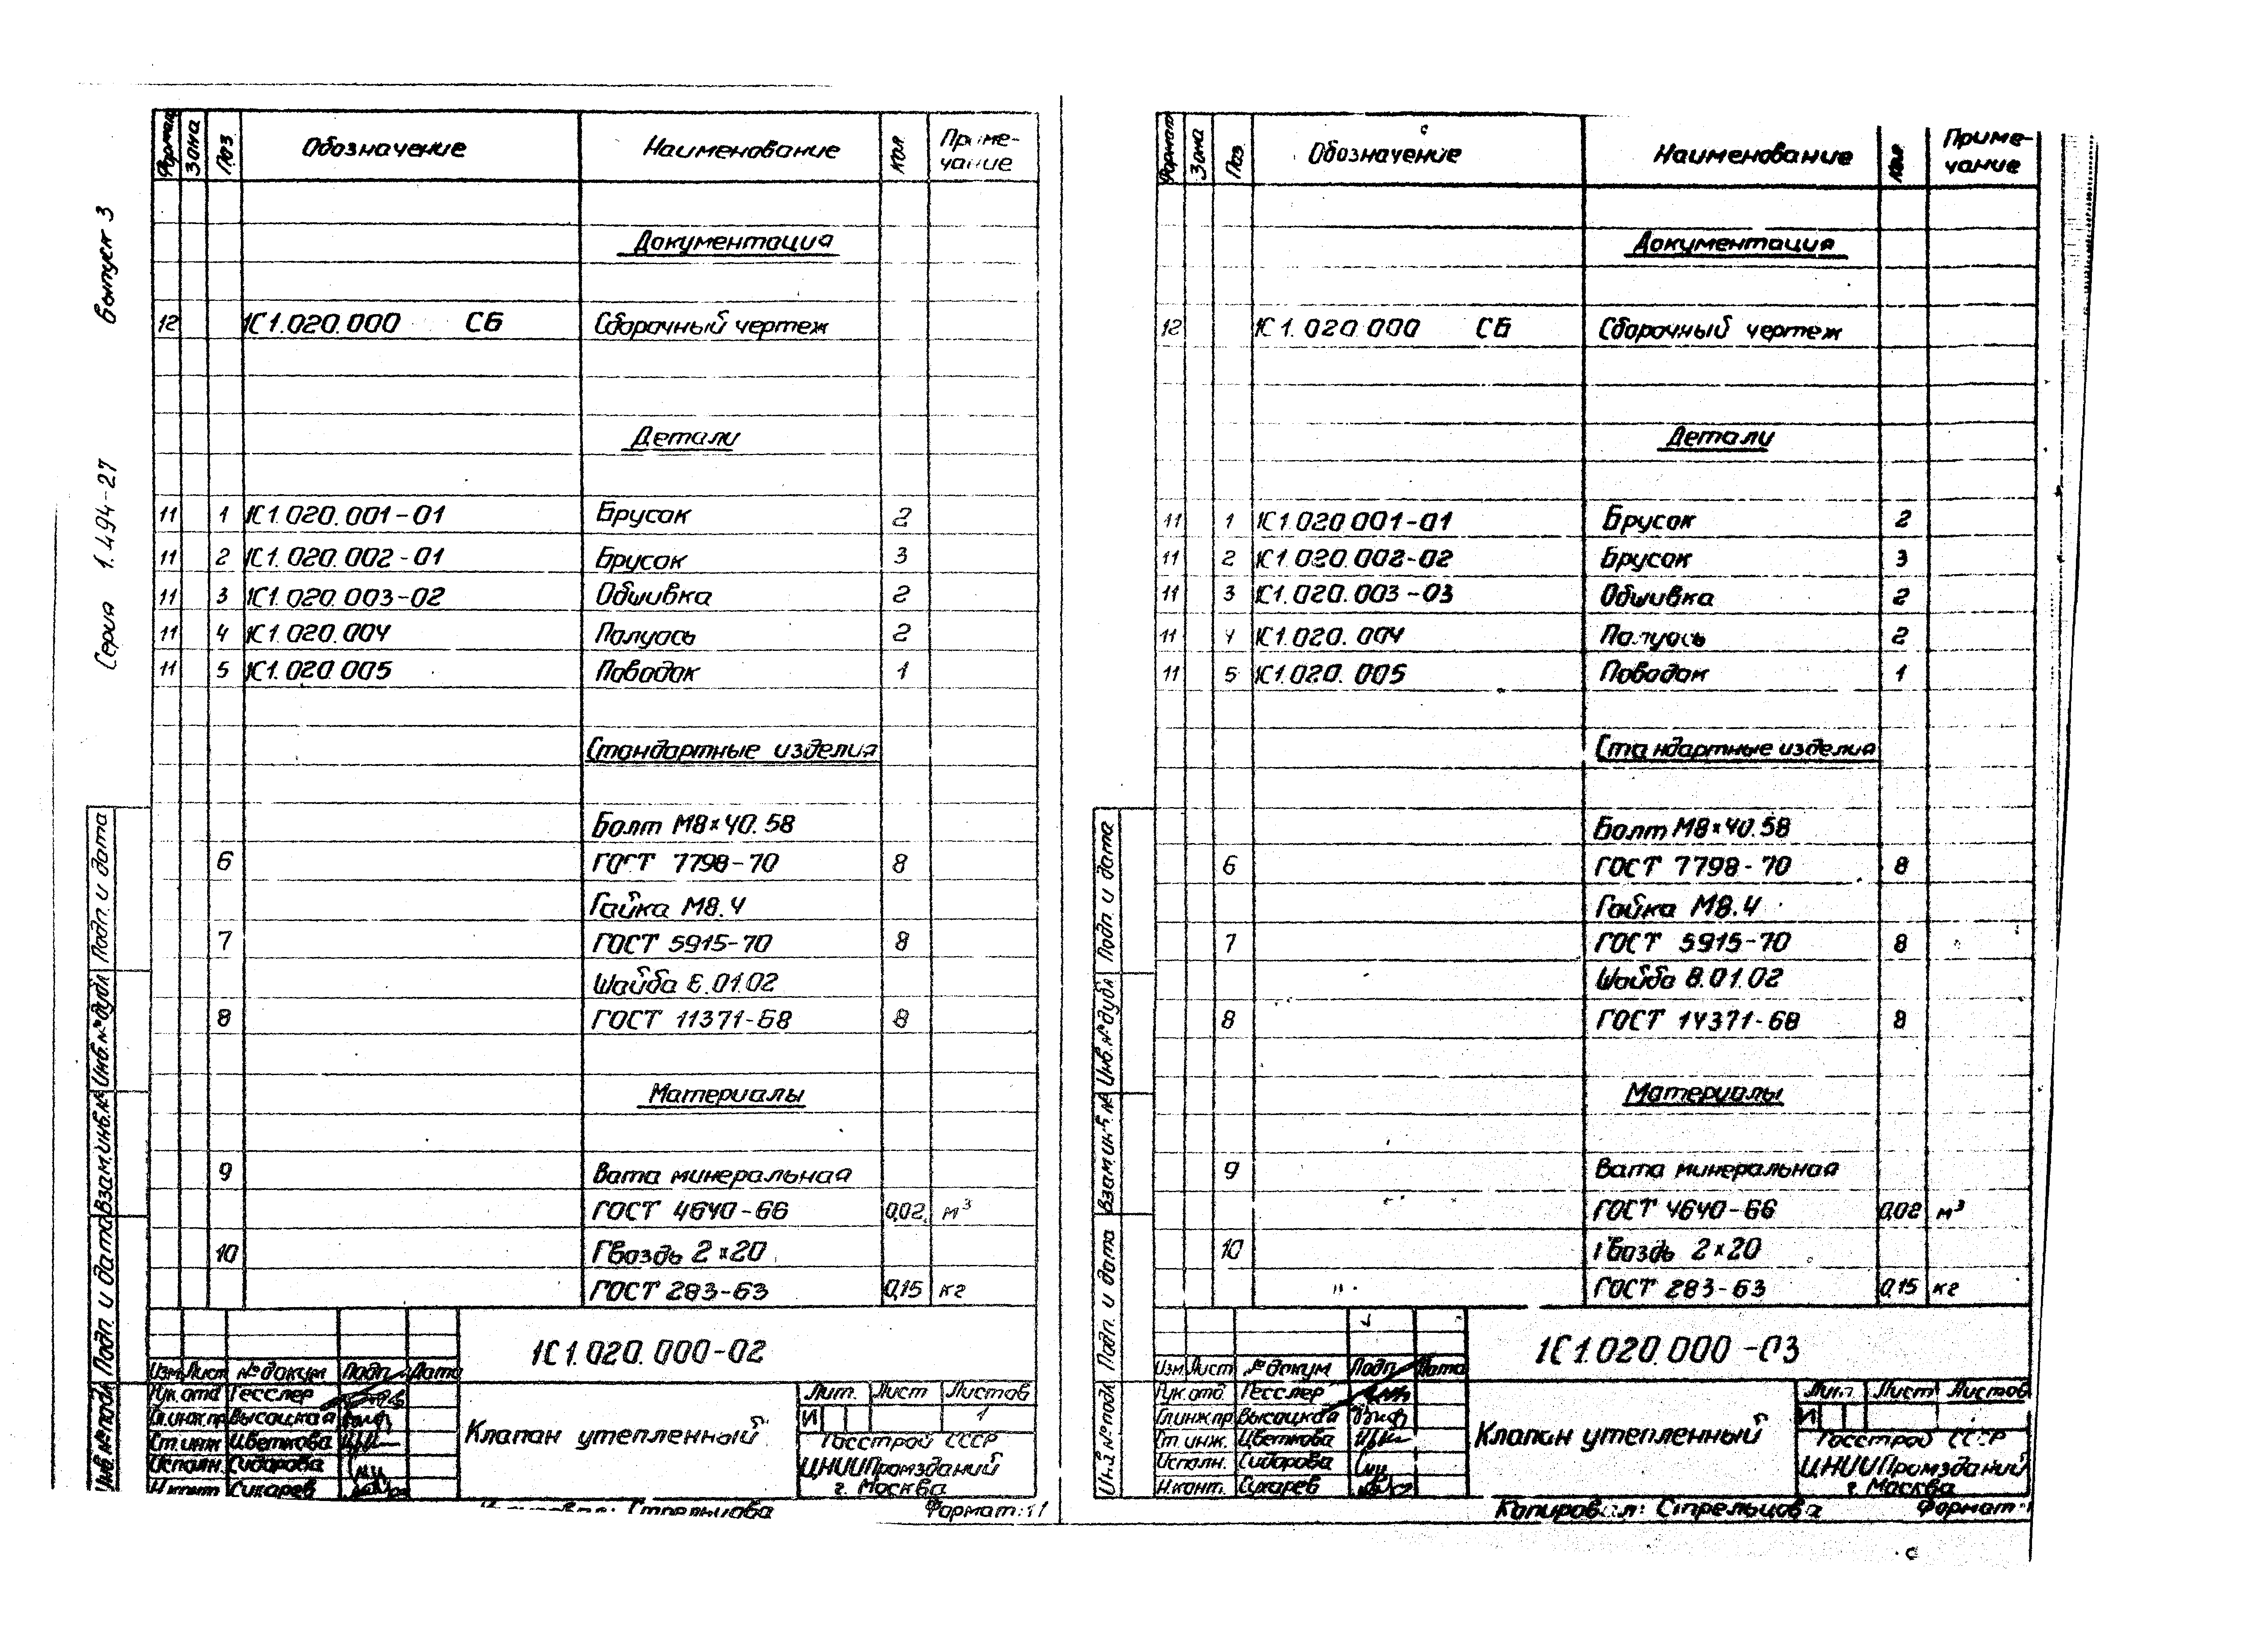 Серия 1.494-27 выпуск 3
Формат Зона Поз Обозначение Наименование Кол Приме-
чание
Документация
12 1С1.020.000 СБ Сборочный чертеж
Детали
11 1 1С1.020.001-01 Брусок 2
11 2 1С1.020.002-01 Брусок 3
11 3 1С1.020.003-02 Обшивка 2
11 4 1С1.020.004 Полуось 2
11 5 1С1.020.005 Поводок 1
Стандартные изделия
Болт М8×40.58
6 ГОСТ 7798-70 8
Гайка М8.4
7 ГОСТ 5915-70 8
Шайба 8.01.02
8 ГОСТ 11371-68 8
Материалы
9 Вата минеральная
ГОСТ 4640-66 0,02 м³
10 Гвоздь 2×20
ГОСТ 283-63 0,15 кг
Инв.№подл Подп. и дата Взам.инв.№ Инв.№дубл Подп. и дата
1С1.020.000-02
Изм Лист № докум Подп Дата
Рук.отд Гесслер
Гл.инж.пр Высоцкая
Ст.инж Цветкова
Исполн. Сидорова
Н.конт Сухарев
Клапан утепленный
Лит. Лист Листов
И 1
Госстрой СССР
ЦНИИПромзданий
г. Москва
Стрельцова Формат:11
Формат Зона Поз. Обозначение Наименование Кол Приме-
чание
Документация
12 1С1.020.000 СБ Сборочный чертеж
Детали
11 1 1С1.020.001-01 Брусок 2
11 2 1С1.020.002-02 Брусок 3
11 3 1С1.020.003-03 Обшивка 2
11 4 1С1.020.004 Полуось 2
11 5 1С1.020.005 Поводок 1
Стандартные изделия
Болт М8×40.58
6 ГОСТ 7798-70 8
Гайка М8.4
7 ГОСТ 5915-70 8
Шайба 8.01.02
8 ГОСТ 11371-68 8
Материалы
9 Вата минеральная
ГОСТ 4640-66 0,02 м³
10 Гвоздь 2×20
ГОСТ 283-63 0,15 кг
Инв.№подл Подп. и дата Взам.инв.№ Инв.№дубл Подп. и дата
1С1.020.000-03
Изм Лист № докум Подп Дата
Рук.отд Гесслер
Гл.инж.пр Высоцкая
Ст.инж. Цветкова
Исполн. Сидорова
Н.конт. Сухарев
Клапан утепленный
Лит Лист Листов
И
Госстрой СССР
ЦНИИПромзданий
г. Москва
Копировал: Стрельцова Формат: